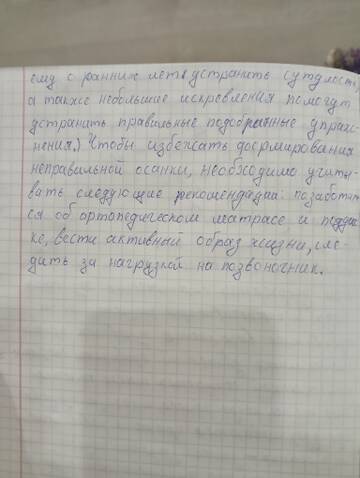 ему с ранних лет. устранить сутулость,
а также небольшие искревления помогут
устранить правильные подобранные упраж-
нения.) Чтобы избежать формирования
неправильной осанки, необходимо учиты-
вать следующие рекомендации: позаботит
ся об ортопедическом матрасе и подуш
ке, вести активный образ жизни, сле-
дить за нагрузкой на позвоночник.